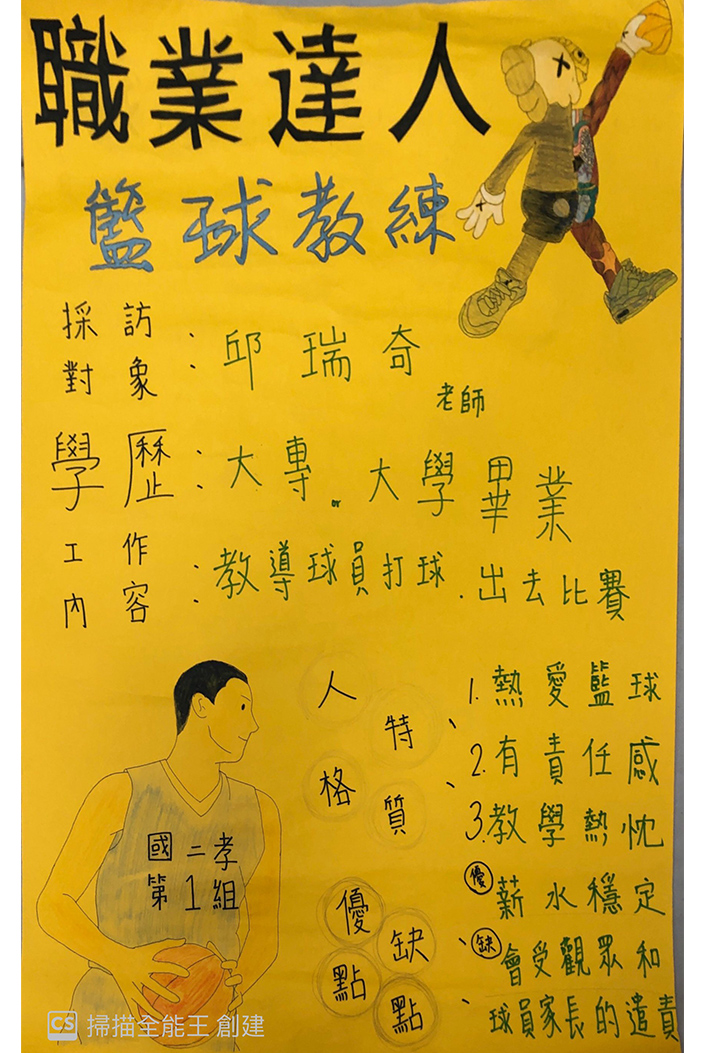 職業達人
籃球教練
採訪對象：邱瑞奇老師
學歷：大專or大學畢業
工作內容：教導球員打球.出去比賽
人格特質、
1.熱愛籃球
2.有責任感
3.教學熱忱
優缺點、
優 薪水穩定
缺 會受觀眾和
球員家長的遣責
國二孝
第1組
CS 掃描全能王 創建